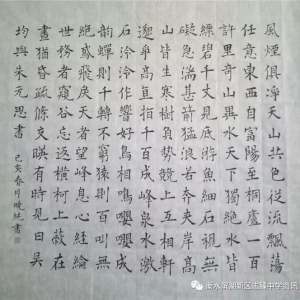 風煙俱淨天山共色從流飄蕩
任意東西自富陽至桐廬一百
許里奇山異水天下獨絕水皆
縹碧千丈見底游魚細石直視無
礙急湍甚箭猛浪若奔夾岸高
山皆生寒樹負勢競上互相軒
邈爭高直指千百成峰泉水激
石泠泠作響好鳥相鳴嚶嚶成
韻蟬則千轉不窮猿則百叫無
絕鳶飛戾天者望峰息心經綸
世務者窺谷忘返橫柯上蔽在
晝猶昏疏條交映有時見日吳
均與朱元思書 己亥春月 書
衡水滨湖新区志臻中学资讯